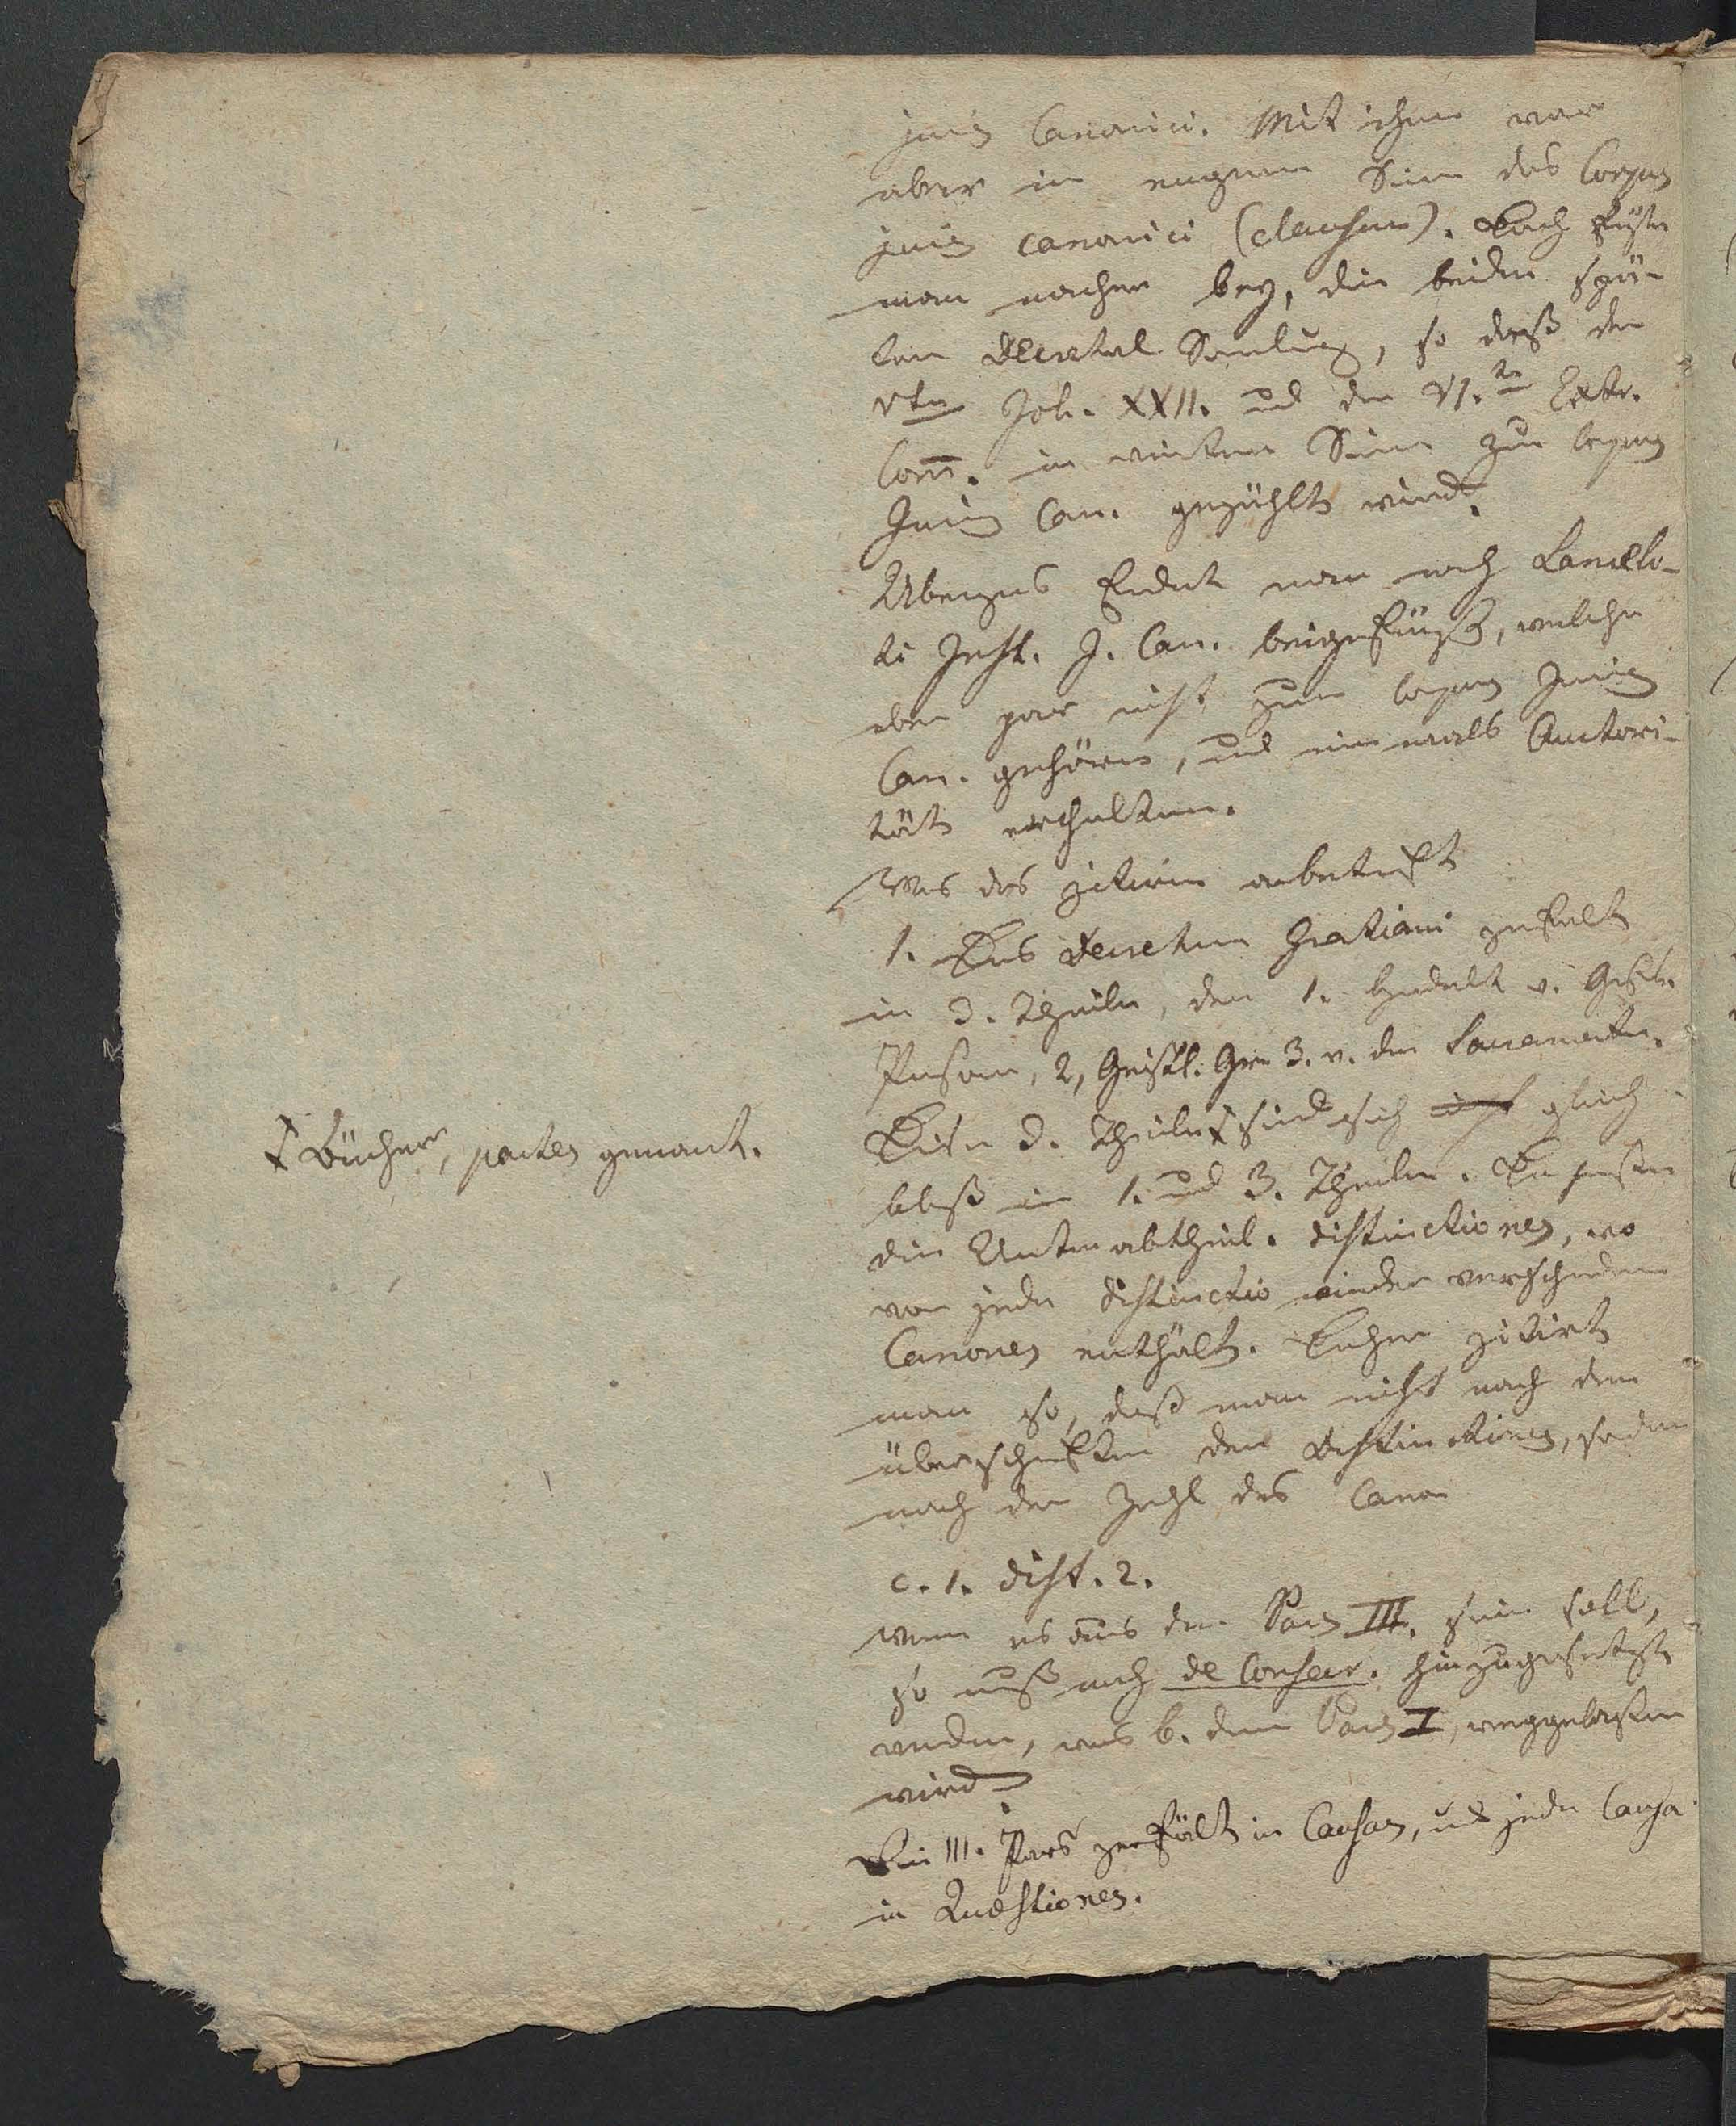 juris Canonici. Mit ihm war
aber im engern Sinn das Corpus
juris canonici (clausum). Doch fügte
man nacher bey, die beiden spä-
tern Decretal Samlung, so daß der
Vte Joh. XXII. und der VI.te Extr.
Com̅. im weitern Sinn zum Corpus
Juris Can. gezählt wird.
Übrigens findet man noch Lancelo-
ti Inst. J. Can. beigefügt, welche
aber gar nicht zum Corpus Juris
Can. gehören, und niemals Autori-
tät erhalten.
Was das zitiren anbetrift
1. Das Decretum Gratiani zerfält
in 3. Theile, der 1. handelt v. Geistl.
Person, 2, Geistl. Ger. 3. v. den Sacramenten.
Diese 3. Theile ☓ sind sich gleich
bloß im 1. und 3. Theile. Da heißen
die Unterabtheil. distinctiones, wo
von jede distinctio wieder verschiedene
Canones enthält. Daher zitirt
man so, daß man nicht nach den
überschriften der Distinctiones, sondern
nach der Zahl des Canon
c. 1. dist. 2.
wenn es aus dem Pars III. sein soll,
so muß noch de Consecr. hinzugesetzt
werden, was b. dem Pars I, weggelassen
wird.
Die III. Pars zerfält in Causas, und jede Causa
in Quæstiones.
☓ Bücher, partes genant.